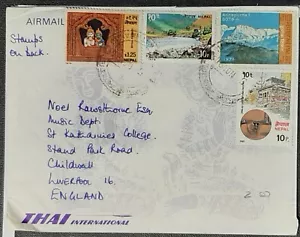 AIRMAIL
Stamps
on back.
नेपाल NEPAL
1.25
NEPAL
10
NEPAL
10
NEPAL
10
Noel Rawsthorne Esq
Music Dept.
St Katharines College.
Stand Park Road.
Childwall
LIVERPOOL 16.
ENGLAND
THAI INTERNATIONAL